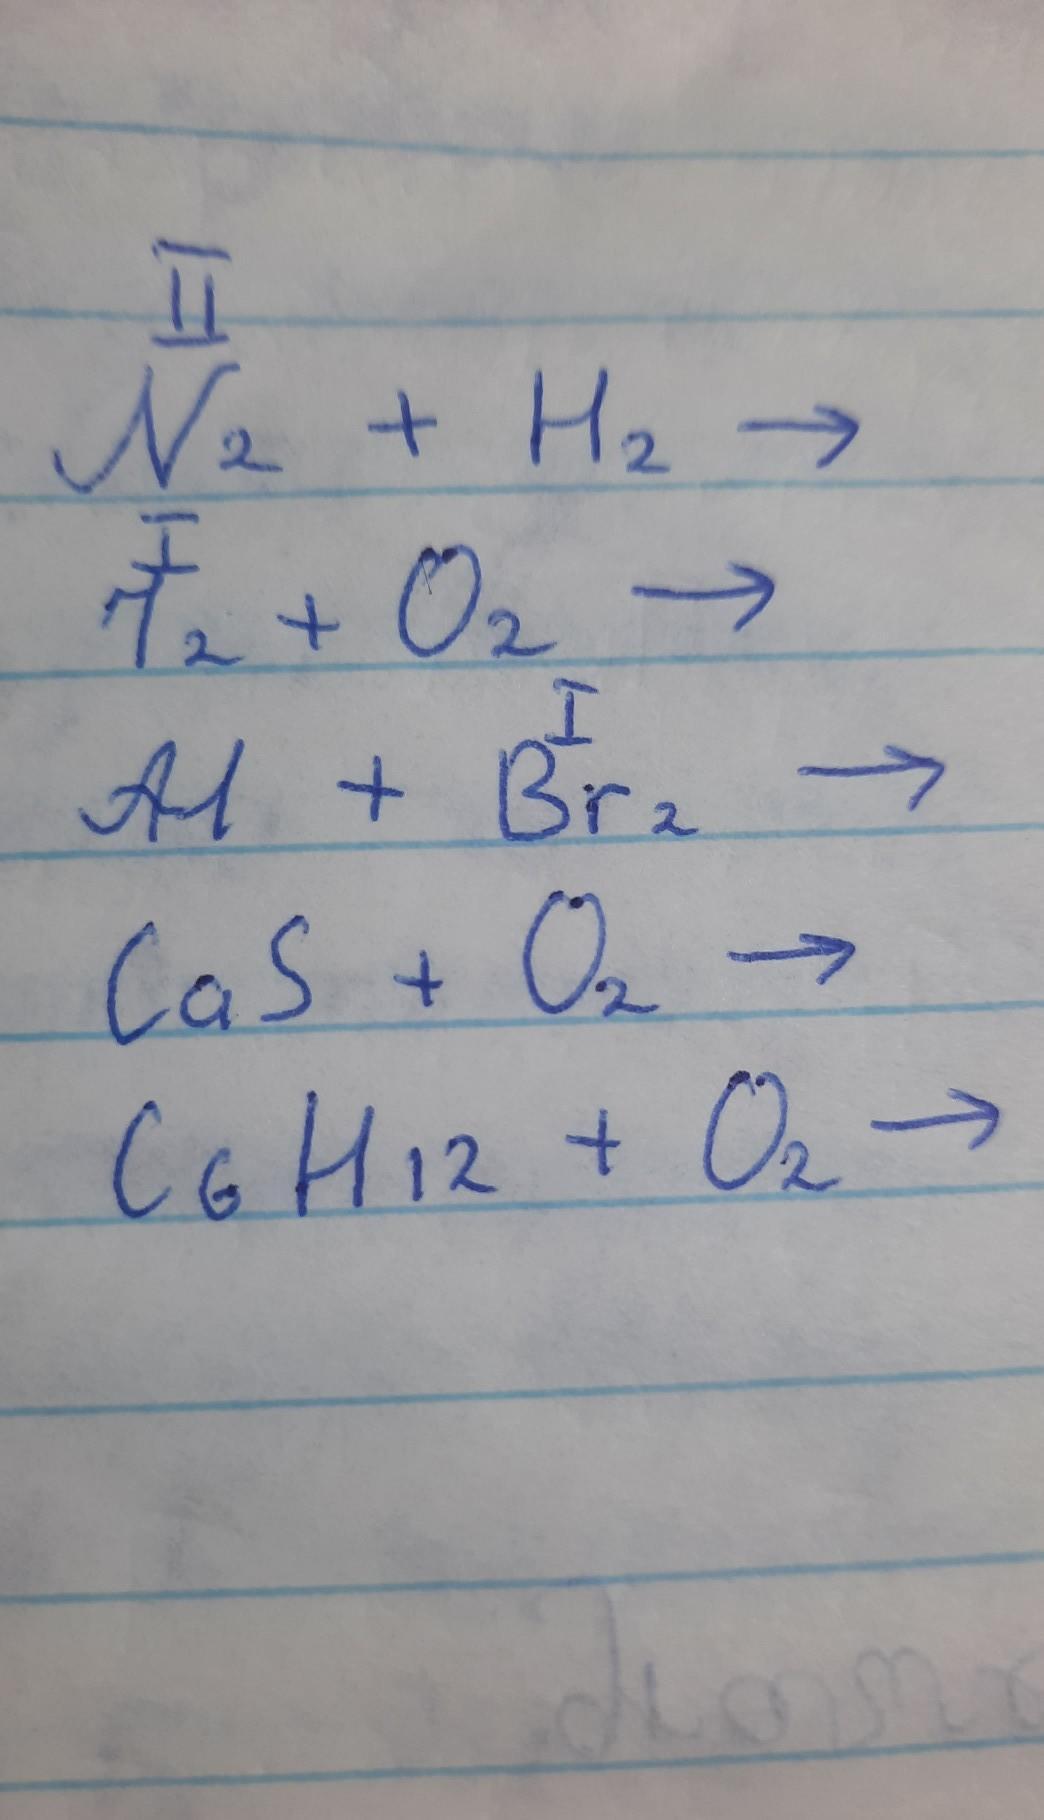 II
N2 + H2 →
I
I2 + O2 →
I
Al + Br2 →
CaS + O2 →
C6H12 + O2 →